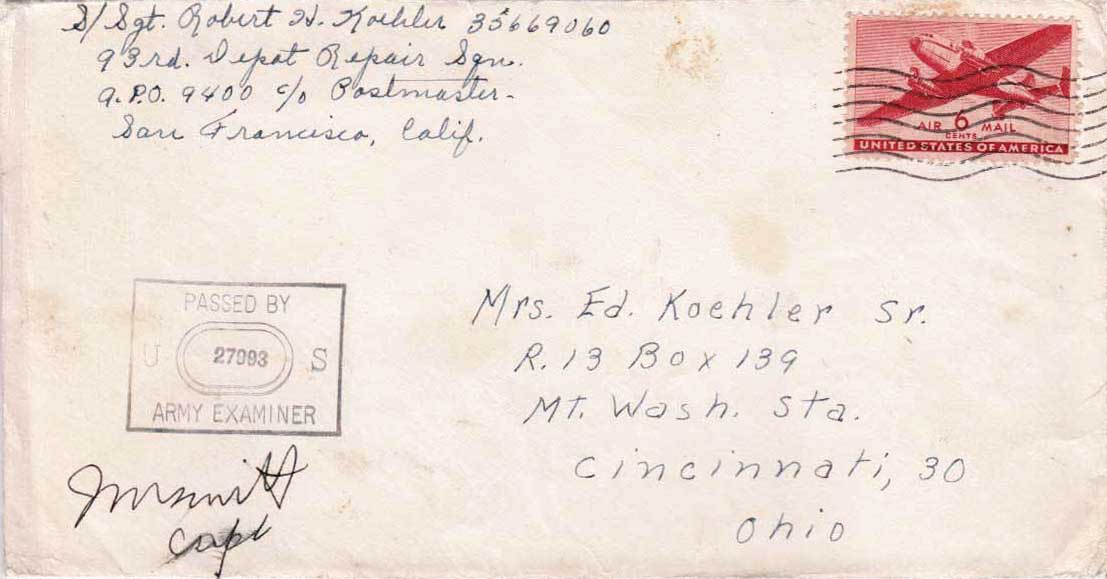 S/Sgt. Robert H. Koehler 35669060
93rd. Depot Repair Sqn.
A.P.O. 9400 c/o Postmaster-
San Francisco, Calif.
AIR 6 MAIL
CENTS
UNITED STATES OF AMERICA
PASSED BY
U 27093 S
ARMY EXAMINER
Capt
Mrs. Ed. Koehler Sr.
R.13 Box 139
Mt. Wash. Sta.
Cincinnati, 30
Ohio